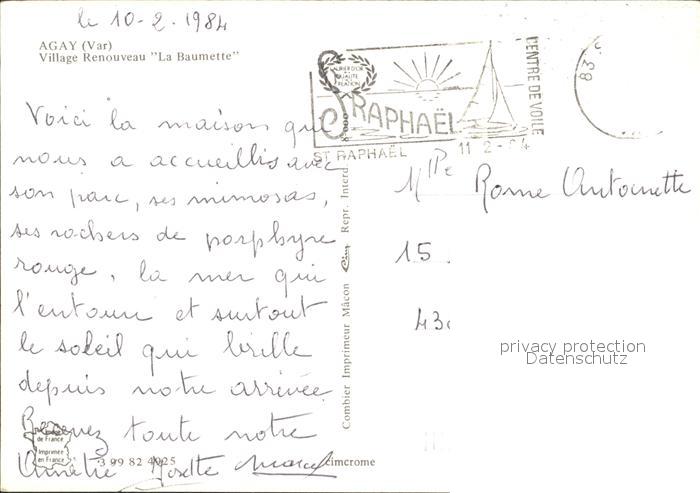 le 10-2-1984
AGAY (Var)
Village Renouveau "La Baumette"
Voici la maison qui
nous a accueillis avec
son parc, ses mimosas,
ses rochers de porphyre
rouge, la mer qui
l'entoure et surtout
le soleil qui brille
depuis notre arrivée
Recevez toute notre
Amitié Josette Marcel
de France
Imprimée
en France
3 99 82 4025
cimcrome
Combier Imprimeur Mâcon Cim Repr. Interd.
LAURIER D'OR
QUALITE
St RAPHAËL
CENTRE DE VOILE
ST RAPHAËL
11-2-84
83
Mlle Rome Antoinette
15
43
privacy protection
Datenschutz